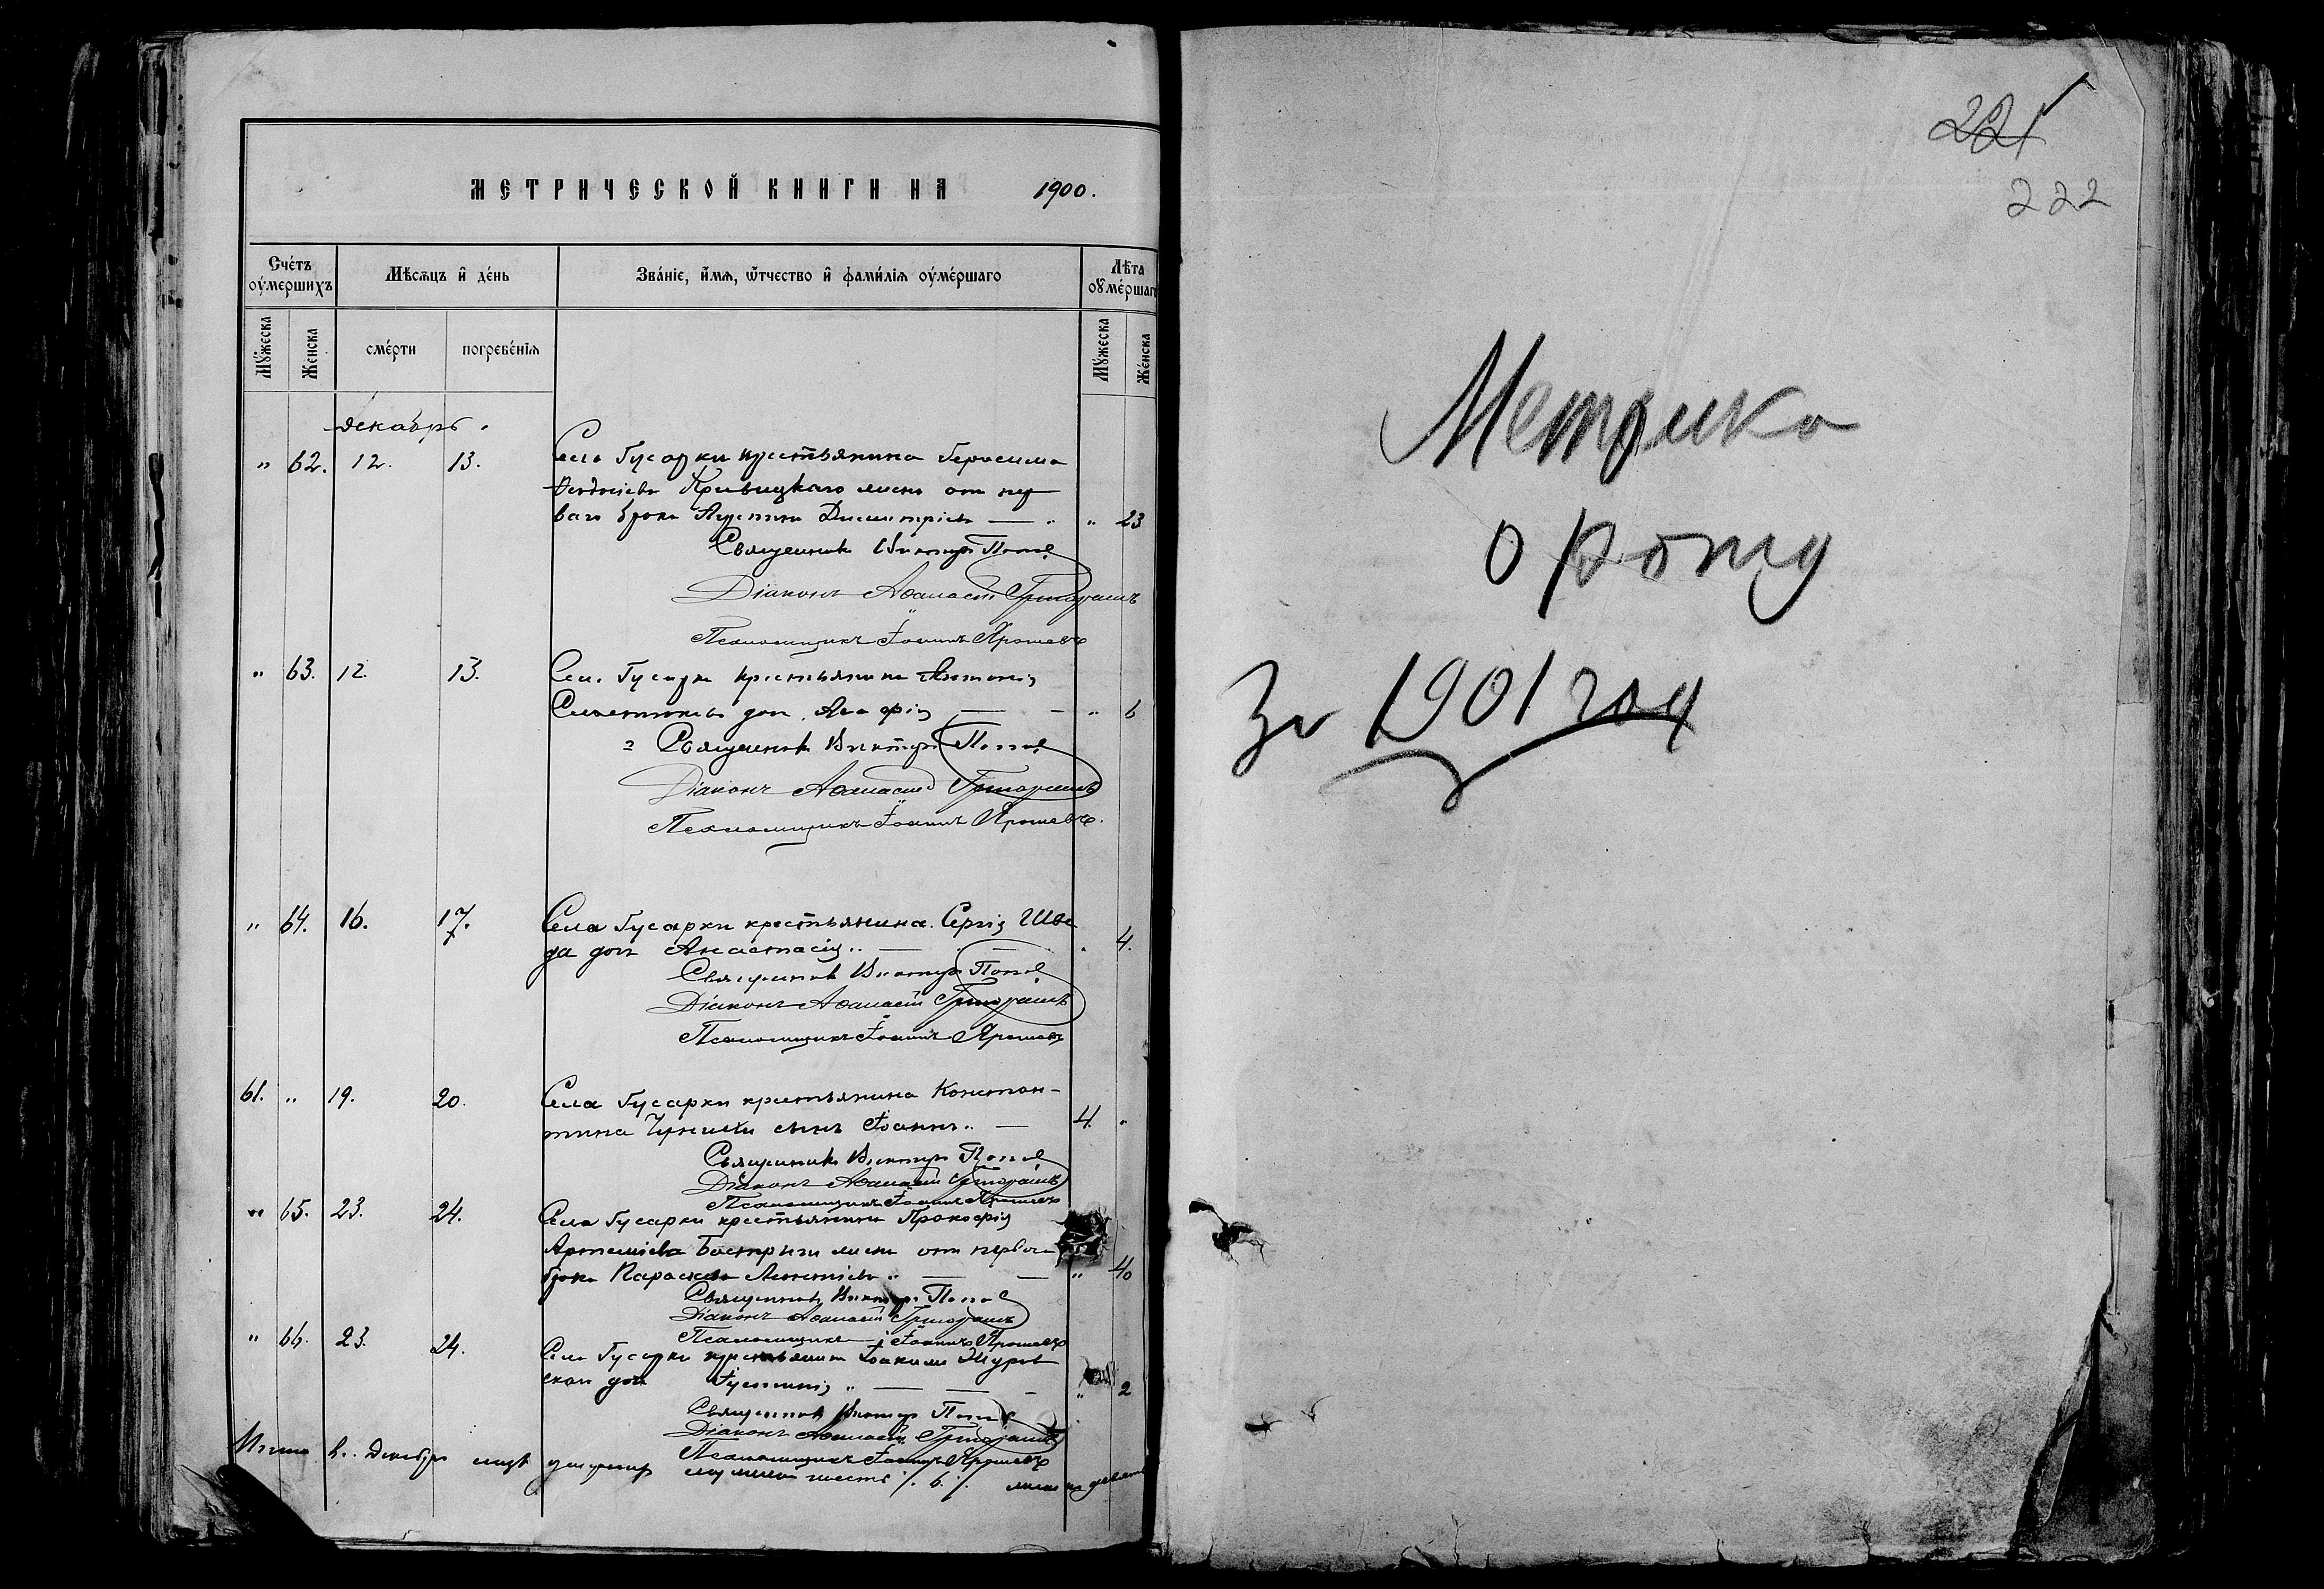 МЕТРИЧЕСКОЙ КНИГИ НА 1900.
Сче́тъ оу҆ме́ршихъ
Мѣ́сѧцъ и҆ де́нь
Зва́нїе, и҆́мѧ, ѿ́тчество и҆ фами́лїѧ оу҆ме́ршагѡ
Лѣ́та оу҆ме́ршаг
Мꙋ́жеска
Же́нска
сме́рти
погребе́нїѧ
Мꙋ́жеска
Же́нска
Декабрь.
" 62. 12. 13. Села Гусарки крестьянина Герасима
Феодосіева Кривицкаго жена от пер
ваго брака Димитріева — " 23
Священникъ Викторъ Попов
Діаконъ Аѳанасій Григорашъ
Псаломщикъ Іоаннъ Ярошевъ
" 63. 12. 13. Села Гусарки крестьянина Антонія
дочь Агафія — — " 6
Священникъ Викторъ Попов
Діаконъ Аѳанасій Григорашъ
Псаломщикъ Іоаннъ Ярошевъ
" 64. 16. 17. Села Гусарки крестьянина Сергія Шве
да дочь Анастасія " — 4.
Священникъ Викторъ Попов
Діаконъ Аѳанасій Григорашъ
Псаломщикъ Іоаннъ Ярошевъ
61. " 19. 20. Села Гусарки крестьянина Констан-
тина сынъ Іоаннъ " — 4. "
Священникъ Викторъ Попов
Діаконъ Аѳанасій Григорашъ
Псаломщикъ Іоаннъ Ярошевъ
" 65. 23. 24. Села Гусарки крестьянина Прокофія
Артеміева Бастрыги жена от перваго
брака Параскева " — — " 40
Священникъ Викторъ Попов
Діаконъ Аѳанасій Григорашъ
Псаломщикъ Іоаннъ Ярошевъ
" 66. 23. 24. Села Гусарки крестьянина Іоакима Журав
дочь Іустинія " — — - " 2
Священникъ Викторъ Попов
Діаконъ Аѳанасій Григорашъ
Псаломщикъ Іоаннъ Ярошевъ
Итого в Декабрѣ шесть /. 6. /.
221
222
Метрика
о рожд
За 1901 год